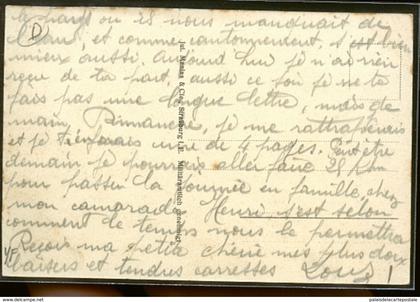 le pays ou ils nous manquait de
l'eau, et comme cantonnement, s'est bien
mieux aussi. Aujourd'hui je n'ai rien
reçu de ta part, aussi ce soir je ne te
fais pas une longue lettre, mais de
main, Dimanche, je me rattraperais
et je t'enverrais une de 4 pages. Peut être
demain je pourrais aller faire 25 km
pour passer la journée en famille, chez
mon camarade Henri, s'est selon
comment de temps nous le permettra
Reçois ma petite chérie mes plus doux
baisers et tendres caresses
D